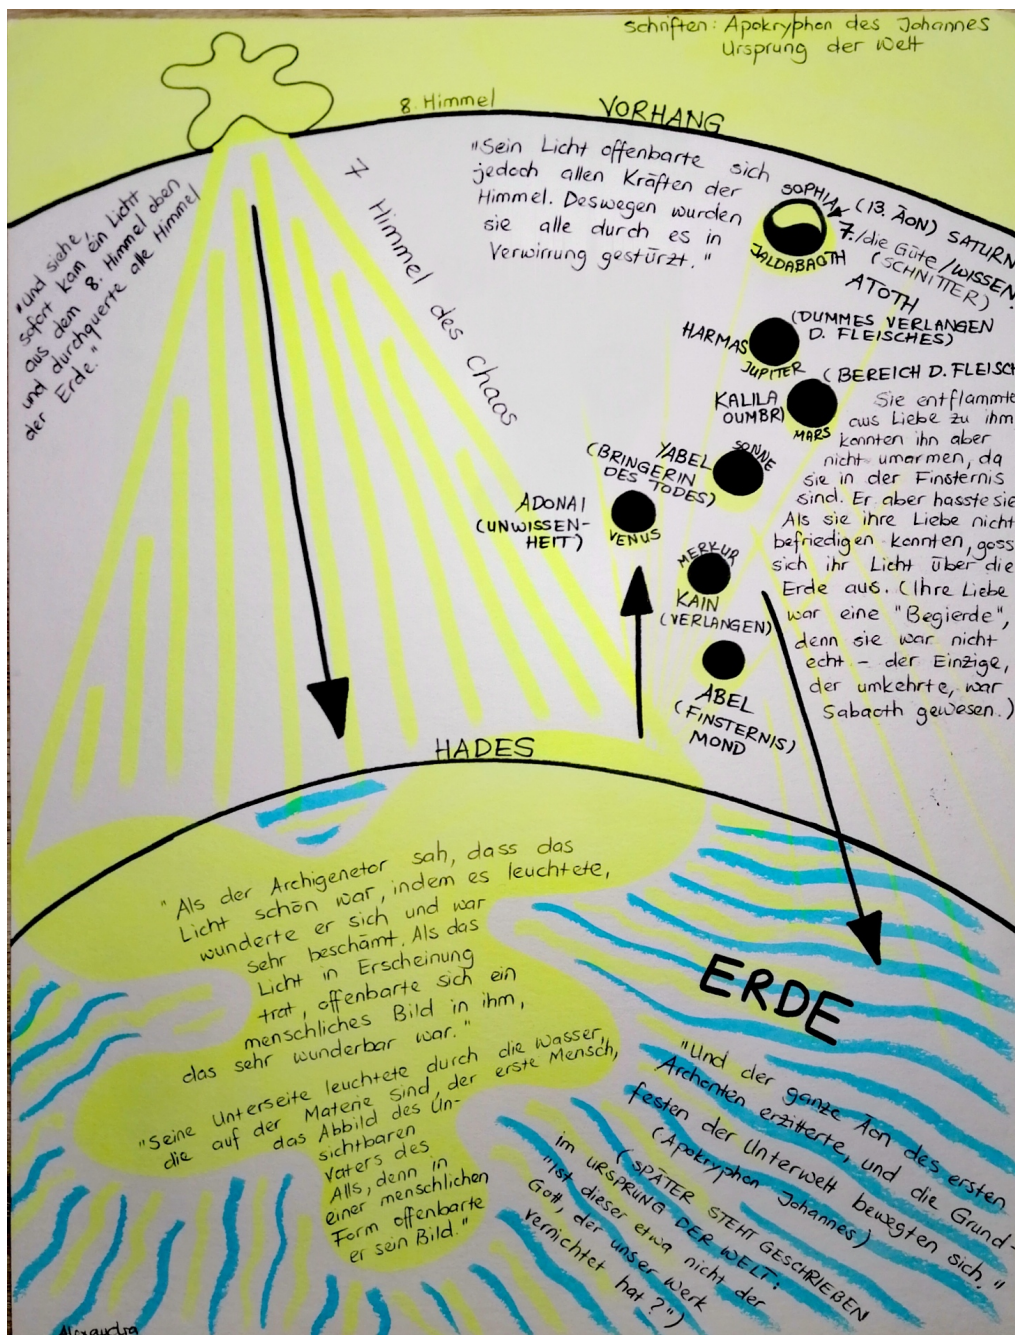 Schriften: Apokryphon des Johannes
Ursprung der Welt
8. Himmel
VORHANG
"Und siehe,
sofort kam ein Licht
aus dem 8. Himmel oben
und durchquerte alle Himmel
der Erde."
7 Himmel des Chaos
"Sein Licht offenbarte sich
jedoch allen Kräften der
Himmel. Deswegen wurden
sie alle durch es in
Verwirrung gestürzt."
SOPHIA
(13. ÄON) SATURN
7./die Güte/WISSEN
(SCHNITTER)
JALDABAOTH
ATOTH
(DUMMES VERLANGEN
D. FLEISCHES)
HARMAS
JUPITER
(BEREICH D. FLEISCH
KALILA
OUMBRI
MARS
YABEL
SONNE
(BRINGERIN
DES TODES)
ADONAI
(UNWISSEN-
HEIT)
VENUS
MERKUR
KAIN
(VERLANGEN)
ABEL
(FINSTERNIS)
MOND
Sie entflammte
aus Liebe zu ihm
konnten ihn aber
nicht umarmen, da
sie in der Finsternis
sind. Er aber hasste sie
Als sie ihre Liebe nicht
befriedigen konnten, goss
sich ihr Licht über die
Erde aus. (Ihre Liebe
war eine "Begierde",
denn sie war nicht
echt - der Einzige,
der umkehrte, war
Sabaoth gewesen.)
HADES
"Als der Archigenetor sah, dass das
Licht schön war, indem es leuchtete,
wunderte er sich und war
sehr beschämt. Als das
Licht in Erscheinung
trat, offenbarte sich ein
menschliches Bild in ihm,
das sehr wunderbar war."
"Seine Unterseite leuchtete durch die Wasser,
die auf der Materie sind, der erste Mensch,
das Abbild des Un-
sichtbaren
Vaters des
Alls, denn in
einer menschlichen
Form offenbarte
er sein Bild."
ERDE
"Und der ganze Äon des ersten
Archonten erzitterte, und die Grund-
festen der Unterwelt bewegten sich."
(Apokryphon Johannes)
(SPÄTER STEHT GESCHRIEBEN
im URSPRUNG DER WELT:
"Ist dieser etwa nicht der
Gott, der unser Werk
vernichtet hat?")
Alexandra